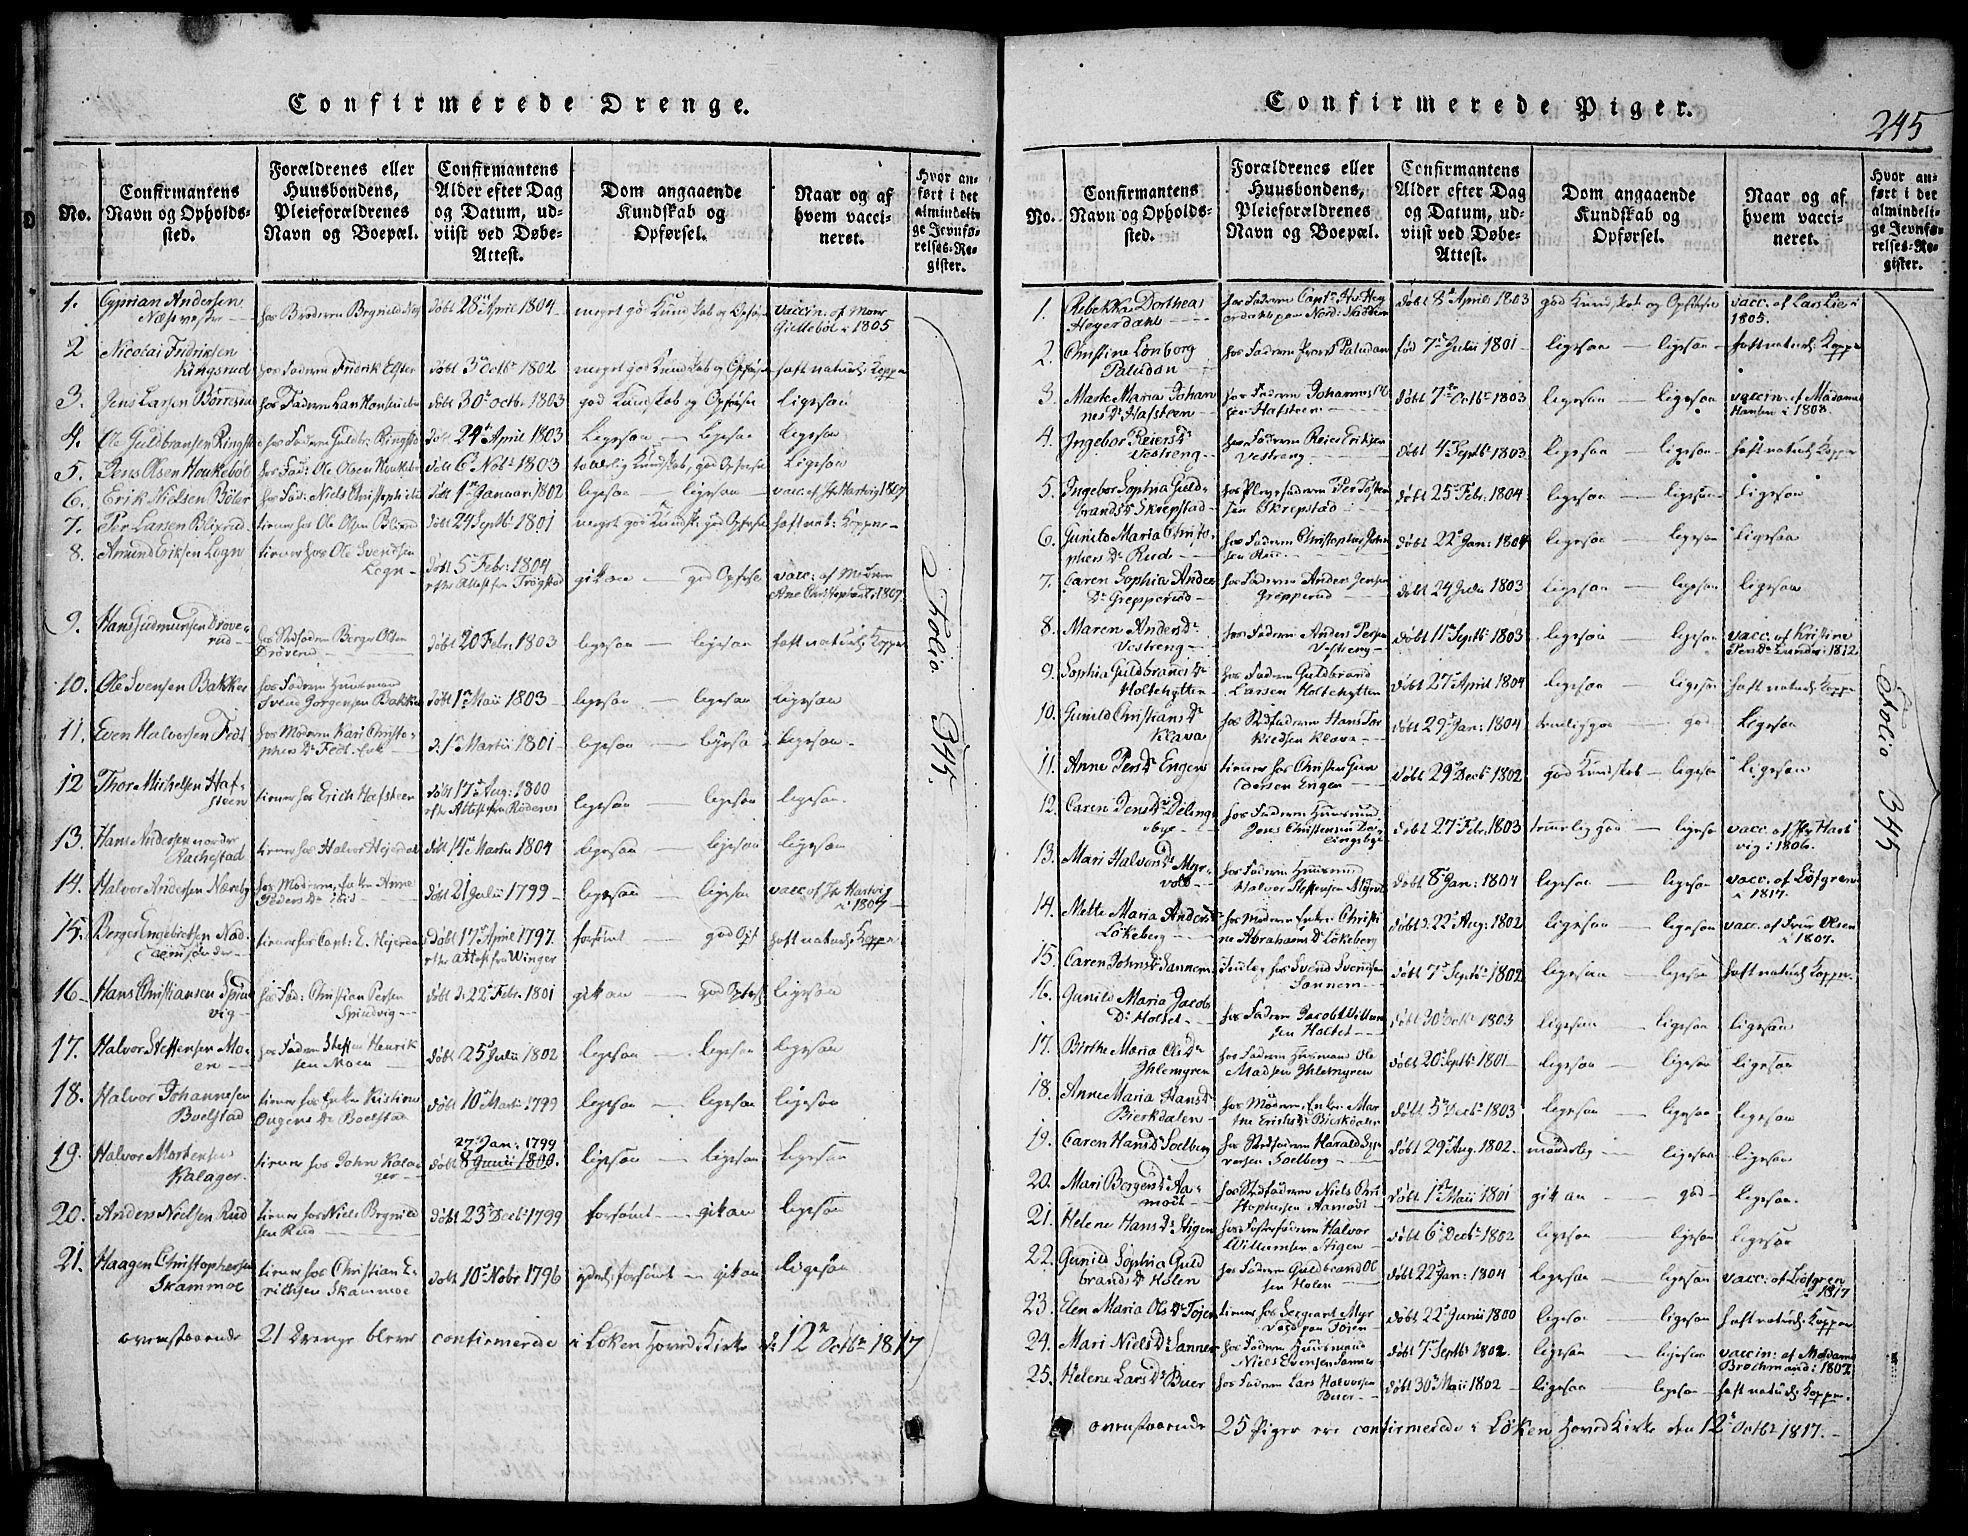 Confirmerede Drenge.
No.
Confirmantens
Navn og Opholds-
sted.
Forældrenes eller
Huusbondens,
Pleieforældrenes
Navn og Boepæl.
Confirmantens
Alder efter Dag
og Datum, ud-
viist ved Døbe-
Attest.
Dom angaaende
Kundskab og
Opførsel.
Naar og af
hvem vacci-
neret.
Hvor an-
ført i det
almindeli-
ge Jevnfø-
relses-Re-
gister.
1. Cyprian Andersen
døbt 28 April 1804 meget god Kundskab og Opførsel
1805
2 Nicolai Fridriksen
Kingsrud døbt 3 Octbr 1802 meget god Kundskab og Opførsel haft naturl: Kopper
3. Jens Larsen døbt 30 octbr 1803 god Kundskab og Opførsel ligesaa
4. Ole Guldbransen døbt 24 April 1803 ligesaa ligesaa ligesaa
5. Jens Olsen døbt 6 Nobr 1803 ligesaa
6. Erik Nielsen Böler døbt 1 Januari 1802 ligesaa ligesaa vacc: af Hr Hartvig 1807
7. Per Larsen tiener hos Ole Olsen døbt 24 Septbr 1801
8. Amund Eriksen tiener hos Ole Svendsen
døbt 5 Febr: 1804
efter Attest fra Trögstad gik an god Opførsel vacc: af Madam
9. Hans Gudmunsen Dröve-
rud døbt 20 Febr 1803 ligesaa ligesaa haft naturl: Kopper
10. Ole Svensen Bakke
Svend Jörgensen Bakke døbt 1 Maii 1803 ligesaa ligesaa ligesaa
11. Even Halvorsen hos Moderen Kari Christo-
d: 1 Martii 1801 ligesaa ligesaa ligesaa
12 Thor Michelsen Haf-
steen tiener hos Erich Hafsteen døbt 17 Aug: 1800
ligesaa ligesaa ligesaa
13. Hans Andersen
tiener hos Halvor døbt 14 Martii 1804 ligesaa ligesaa ligesaa
14. Halvor Andersen døbt 21 Julii 1799 ligesaa ligesaa vacc: af Hr Hartvig
i 1807
15. døbt 17 April 1797. forsömt god Opf: haft naturl: Kopper
efter Attest fra Winger
16 Hans Christiansen Spind-
vig hos Fad: Christian Persen
Spindvig døbt d: 22 Febr. 1801 gik an god Opførsel ligesaa
17. Halvor Steffensen Mo-
en hos Faderen Steffen Henrik
sen Moen døbt 25 Julii 1802 ligesaa ligesaa ligesaa
18. Halvor Johannesen
Boelstad døbt 10 Martii 1799 ligesaa ligesaa ligesaa
19. Halvor Mortensen
Kalager tiener hos John Kala-
ger 27 Jan: 1799
døbt 8 Junii 1800. ligesaa ligesaa ligesaa
20. Anders Nielsen Rud tiener hos Niels
sen Rud døbt 23 Decbr 1799 forsömt gik an ligesaa
21. Haagen Christophersen
Skammoe tiener hos Christian E-
richsen Skammoe døbt 10 Nobr 1796 forsömt gik an ligesaa
ovenstaaende 21 Drenge bleve confirmerede i Löken Hoved Kirke d: 12 Octbr 1817
Folio 345.
Confirmerede Piger.
245
No.
Confirmantens
Navn og Opholds-
sted.
Forældrenes eller
Huusbondens,
Pleieforældrenes
Navn og Boepæl.
Confirmantens
Alder efter Dag
og Datum, ud-
viist ved Døbe-
Attest.
Dom angaaende
Kundskab og
Opførsel.
Naar og af
hvem vacci-
neret.
Hvor an-
ført i det
almindeli-
ge Jevnfø-
relses-Re-
gister.
1. Rebekka Dorthea
Heyerdahl døbt 8 April 1803 god Kundskab og Opførsel
1805.
2. Christine Lonborg
Paludan hos Faderen Præst Paludan fød 7 Julii 1801 ligesaa ligesaa haft naturl: Kopper
3. Marte Maria Johan
nes Dr Hafsteen hos Faderen Johannes Ol
sen Hafsteen døbt 7 Octbr 1803 ligesaa ligesaa vaccin: af Madame
Hansen i 1808.
4. Ingebor Reiers Dr
Vestreng hos Faderen Reier Eriksen
Vestreng døbt 4 Septbr 1803 ligesaa ligesaa haft naturl: Kopper
5. Ingebor Sophia Guld-
brands Dr Skrepstad hos Pleyefaderen Per Tosten
sen Skrepstad døbt 25 Febr: 1804 ligesaa ligesaa ligesaa
6. Gunild Maria Christo-
phers Dr Rud hos Faderen Christopher
døbt 22 Jan: 1804 ligesaa ligesaa ligesaa
7. Caren Sophia Anders
Dr Grepperud hos Faderen Anders Jensen
Grepperud døbt 24 Julii 1803 ligesaa ligesaa ligesaa
8. Maren Anders Dr
Vestreng hos Faderen Anders Persen
Vestreng døbt 11 Septbr 1803 ligesaa ligesaa vacc: af Kristine
i 1812
9. Sophia Guldbrands Dr
Holtehytten hos Faderen Guldbrand
Larsen Holtehytten døbt 27 April 1804 ligesaa ligesaa haft naturl: Kopper
10. Gunild Christians Dr
Klava hos Stedfaderen Hans Tor
kildsen Klava døbt 29 Jan: 1804 temelig god god ligesaa
11. Anne Pers Dr Engen tiener hos Christen Gun
dersen Engen døbt 29 Decbr 1802 god Kundskab ligesaa ligesaa
12. Caren Jens Dr Döling-
bye hos Faderen Huusmand
Jens Christensen Dö-
lingbye døbt 27 Febr 1803 temmelig god ligesaa vacc: af Hr Hart
vig i 1806.
13. Mari Halvors Dr Myr-
vold hos Faderen Huusmand
Halvor Steffensen Myrvold døbt 8 Jan: 1804 ligesaa ligesaa vacc: af Löfgren
i 1817.
14. Mette Maria Anders Dr
Lökeberg hos Moderen Enke Christi
ne Abrahams Dr Lökeberg døbt d: 22 Aug: 1802 ligesaa ligesaa vacc: af Olsen
i 1807.
15. Caren Johns Dr Sannem hos Svend Svendsen
Sannem døbt 7 Septbr 1802 ligesaa ligesaa haft naturl: Kopper
16. Gunild Maria Jacobs
Dr Holtet hos Faderen Jacob Willum
sen Holtet døbt 30 Octbr 1803 ligesaa ligesaa ligesaa
17. Birthe Maria Ols Dr
Ihlemyren hos Faderen Huusmand Ole
Madsen Ihlemyren døbt 20 Septbr 1801 ligesaa ligesaa ligesaa
18. Anne Maria Hans Dr
Bierkdalen hos Moderen Enke Mar
the Eriks Dr Bierkdalen døbt 5 Decbr 1803 ligesaa ligesaa ligesaa
19. Caren Hans Dr Soelberg hos Stedfaderen Harald
versen Soelberg døbt 29 Aug. 1802. maadelig ligesaa ligesaa
20. Mari Bergers Dr Aa-
modt hos Stedfaderen Niels Chri
stophersen Aamodt døbt 1 Maii 1801 gik an god ligesaa.
21. Helene Hans Dr Stigen hos Fosterfaderen Halvor
Willumsen Stigen døbt 6 Decbr 1802 ligesaa ligesaa ligesaa
22. Gunild Sophia Guld
brands Dr Holen hos Faderen Guldbrand Ol
sen Holen døbt 22 Jan: 1804 ligesaa ligesaa vacc: af Löfgren
i 1817
23. Elen Maria Ols Dr Töien tiener hos Sergiant Myr
vold paa Töien døbt 22 Junii 1800 ligesaa ligesaa haft naturl: Kopper
24. Mari Niels Dr Sanner hos Faderen Huusmand
Niels Evensen Sanner døbt 7 Septbr 1802 ligesaa ligesaa vaccin: af Madame
Brochmand i 1807
25. Helene Lars Dr Buer hos Faderen Lars Halvorsen
Buer døbt 30 Maii 1802 ligesaa ligesaa haft naturl: Kopper.
ovenstaaende 25 Piger ere confirmerede i Löken Hoved Kirke den 12 Octbr 1817.
Folio 345